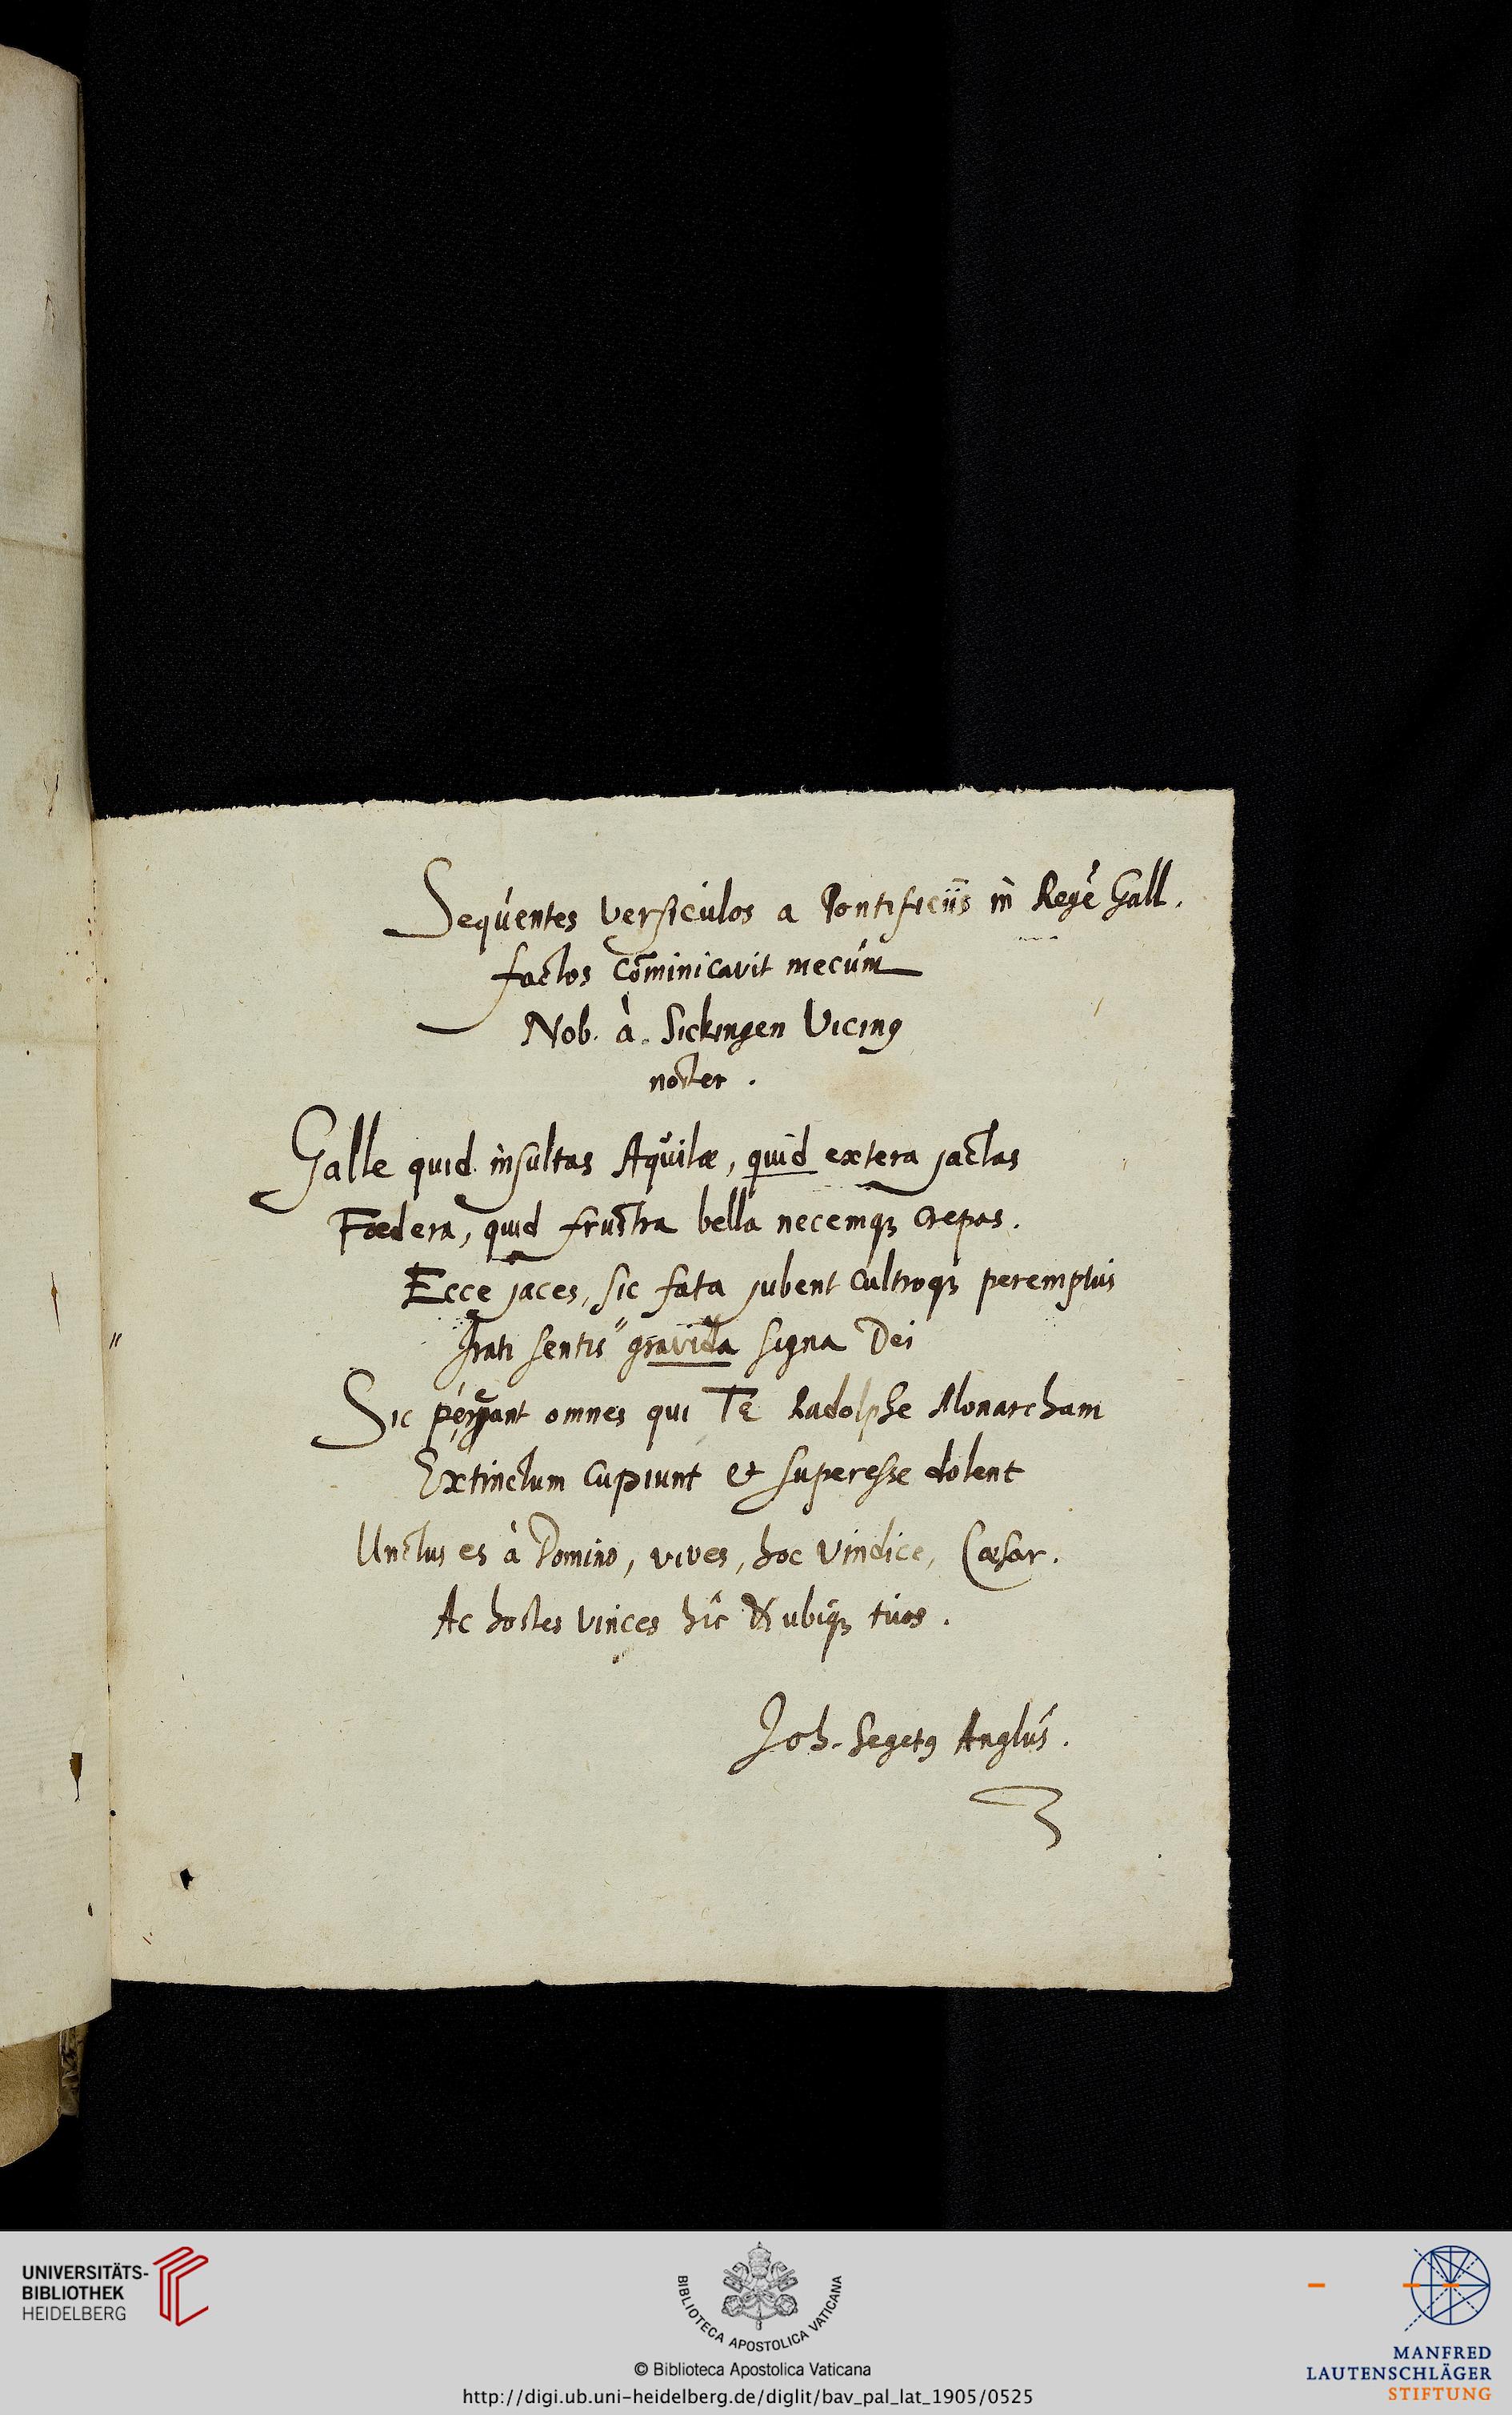 Sequentes versiculos a Pontificiis in Regē Gall.
factos com̄inicavit mecum
Nob. à. Sickingen Vicinꝰ
noster.
Galle quid insultas Aquilæ, quid extera jactas
Fœdera, quid frustra bella necemqꝫ crepas.
Ecce jaces, sic fata jubent cultroqꝫ peremptus
Irati sentis " gravida signa Dei
"
Sic pereant omnes qui TE Radolphe Monarcham
Extinctum cupiunt et superesse dolent
Unctus es à Domino, vives, hoc vindice, Cæsar.
Ac hostes vinces hîc & ubiqꝫ tuos.
Joh. Segetꝰ Anglus.
UNIVERSITÄTS-
BIBLIOTHEK
HEIDELBERG
BIBLIOTECA APOSTOLICA VATICANA
© Biblioteca Apostolica Vaticana
http://digi.ub.uni-heidelberg.de/diglit/bav_pal_lat_1905/0525
MANFRED
LAUTENSCHLÄGER
STIFTUNG